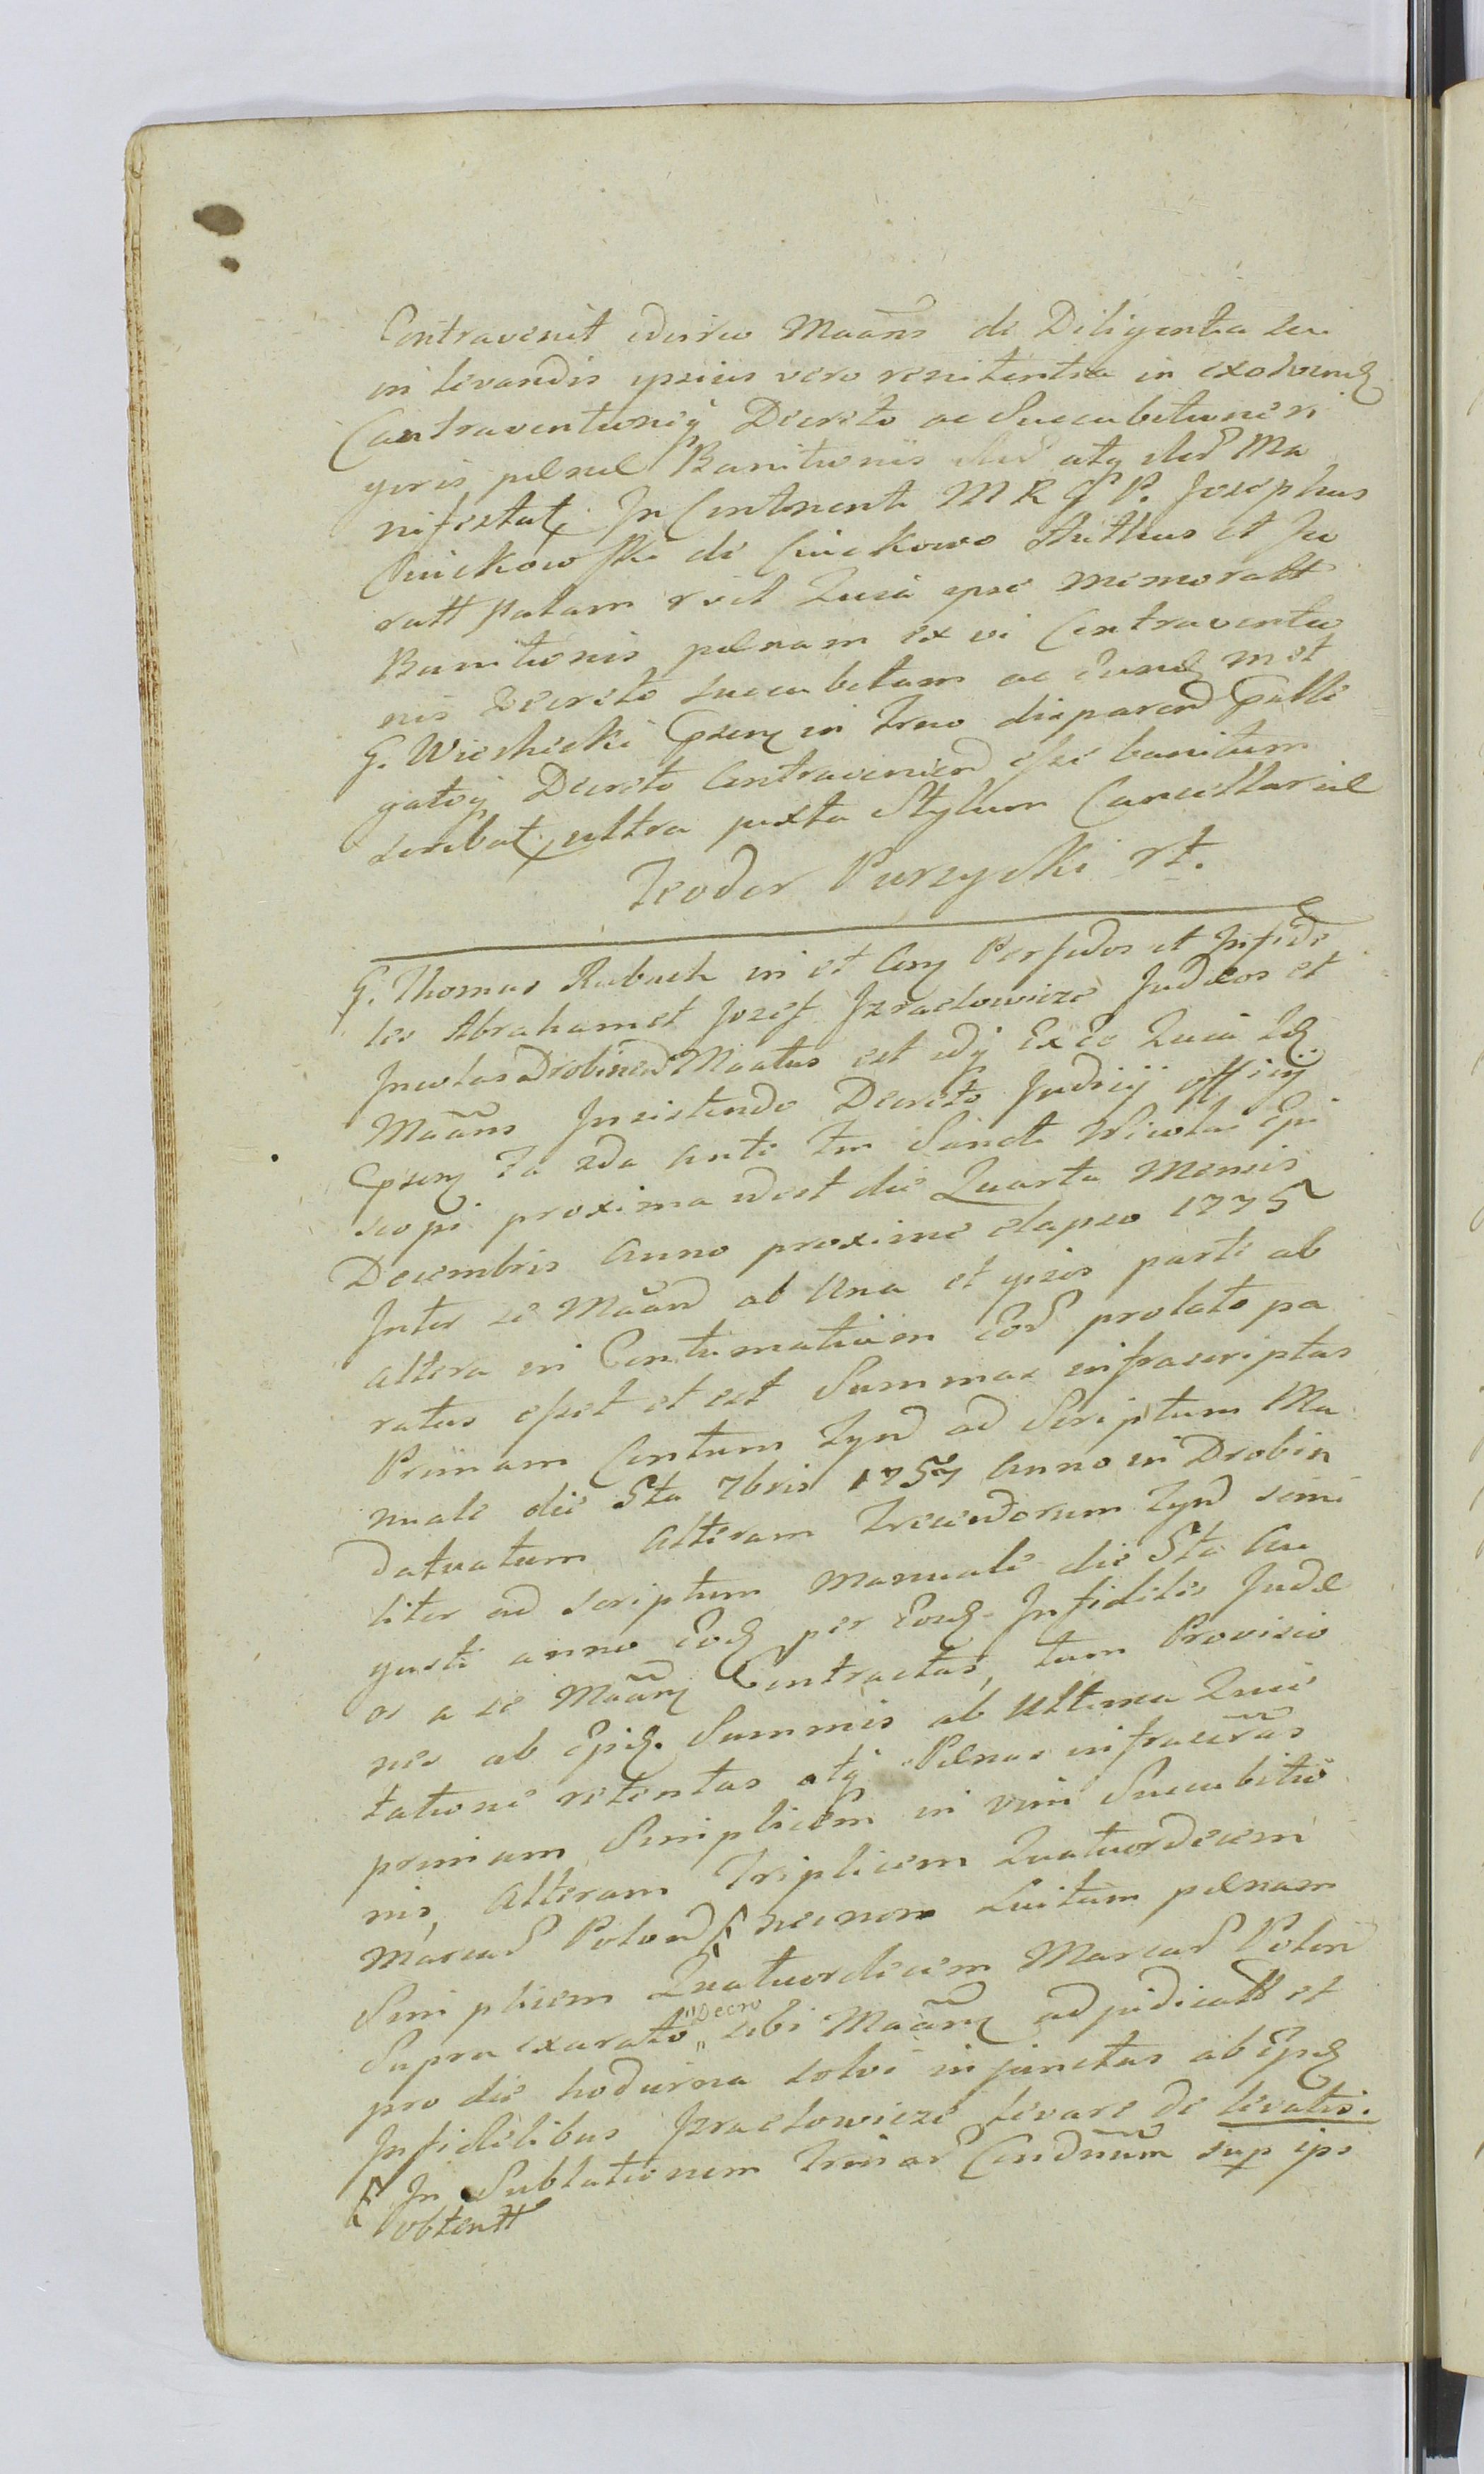 Contravenit idcirco Maãns de Diligentia sui
in levandis ipsius vero renitentia in exolvend
Contraventioneq Decreto ac Succubitioneri
goris pœnæ Banitionis sed atq sed Ma
nifestat. In Continenti M R G P. Josephus
Cuickowski de Cuickowo Authus et Ju
ratt palam rvit Quia ipse memoratt
Banitionis pœnam ex vi Contraventio
nis Decreto succubitam ac eund met
G. Wieshicki Cpsem in Trno disparend Publi
gatoq Decreto Contraveniend esse banitum
scribat, ultra juxta Stylum Cancellariæ
Teodor Purzycki rt.
G. Thomas Rubach in et Conq Perfidos et Infide
les Abraham et Jozef Jzraelowicze Judæos et
Incolas Drobined Maatus est idq Ex Eo Quia Id
Maãns Insistendo Decreto Judicij officij
Cpsem Fa 2da Ante Fm Sancti Nicolai Epi
scopi proxima idest die Quarta Mensis
Decembris Anno proxime elapso 1775
Inter se Maãnd ab Una et ipsos parte ab
altera in Contumatiam Eod prolato pa
ratus esset et est Summas infrascriptas
Primam Centum Tynd ad Scriptum Ma
nuale die 5ta 7bris 1757 Anno in Drobin
Datuatum Alteram Trecendorum Tynd simi
liter ad scriptum Manuale die 5ta Au
gusti anno Eod per Eosd Infidelis Judæ
os a se Maãnq Contractas, tum Provisio
nes ab Epid. Summis ab Ultima Quie
tatione retentas atq Pœnas infrascrãs
primam Simplicem in vim Succubitio
nis, Alteram Triplicem Quatuordecem
Marcad Polond necnon Luitum pœnam
Simplicem Quatuordecem Marcad Polon
Supra exarato "Decro" sibi Maãnq adjudicatt et
pro die hodierna solvi injunctas ab Epid
Infidelibus Jzraelowicze levare de levatis.
In Sublationem Trinad Condnũm sup ips
obtentt